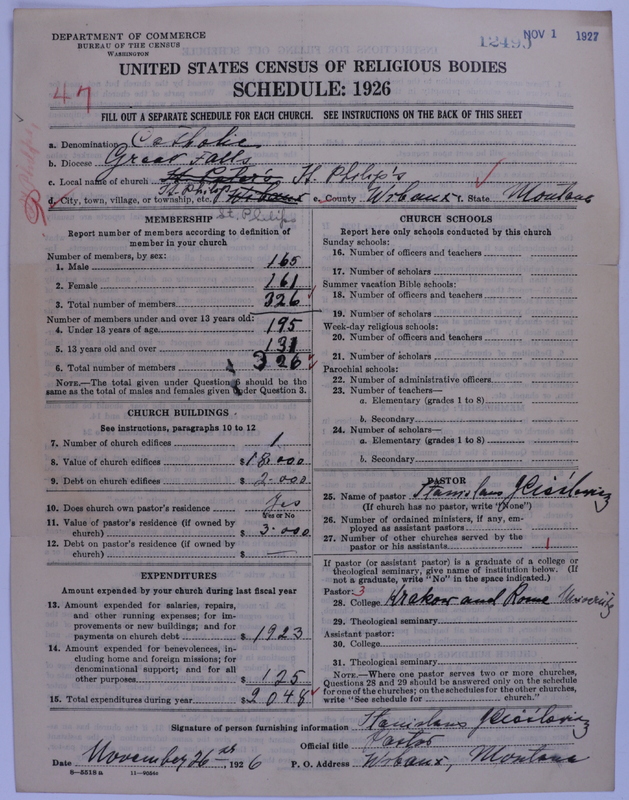 DEPARTMENT OF COMMERCE
BUREAU OF THE CENSUS
WASHINGTON
12493 NOV 1 1927
UNITED STATES CENSUS OF RELIGIOUS BODIES
SCHEDULE: 1926
47
FILL OUT A SEPARATE SCHEDULE FOR EACH CHURCH. SEE INSTRUCTIONS ON THE BACK OF THIS SHEET
a. Denomination Catholic
b. Diocese Great Falls
c. Local name of church St. Peter's, St. Philip's
d. City, town, village, or township, etc. St. Philip's Wibaux e. County Wibaux f. State Montana
St. Philips
MEMBERSHIP
Report number of members according to definition of member in your church
Number of members, by sex:
1. Male 165
2. Female 161
3. Total number of members 326
Number of members under and over 13 years old:
4. Under 13 years of age 195
5. 13 years old and over 131
6. Total number of members 326
NOTE.—The total given under Question 6 should be the
same as the total of males and females given under Question 3.
CHURCH BUILDINGS
See instructions, paragraphs 10 to 12
7. Number of church edifices 1
8. Value of church edifices $18.000
9. Debt on church edifices $2.000
10. Does church own pastor's residence Yes
Yes or No
11. Value of pastor's residence (if owned by
church) $3.000
12. Debt on pastor's residence (if owned by
church) $ —
EXPENDITURES
Amount expended by your church during last fiscal year
13. Amount expended for salaries, repairs,
and other running expenses; for im-
provements or new buildings; and for
payments on church debt $1923
14. Amount expended for benevolences, in-
cluding home and foreign missions; for
denominational support; and for all
other purposes $125
15. Total expenditures during year $2048
CHURCH SCHOOLS
Report here only schools conducted by this church
Sunday schools:
16. Number of officers and teachers
17. Number of scholars
Summer vacation Bible schools:
18. Number of officers and teachers
19. Number of scholars
Week-day religious schools:
20. Number of officers and teachers
21. Number of scholars
Parochial schools:
22. Number of administrative officers
23. Number of teachers—
a. Elementary (grades 1 to 8)
b. Secondary
24. Number of scholars—
a. Elementary (grades 1 to 8)
b. Secondary
PASTOR
25. Name of pastor Stanislaus
(If church has no pastor, write "None")
26. Number of ordained ministers, if any, em-
ployed as assistant pastors
27. Number of other churches served by the
pastor or his assistants 1
If pastor (or assistant pastor) is a graduate of a college or
theological seminary, give name of institution below. (If
not a graduate, write "No" in the space indicated.)
Pastor: 3
28. College Krakow and Rome University
29. Theological seminary
Assistant pastor:
30. College
31. Theological seminary
NOTE.—Where one pastor serves two or more churches,
Questions 28 and 29 should be answered only on the schedule
for one of the churches; on the schedules for the other churches,
write "See schedule for church."
Signature of person furnishing information Stanislaus
Official title Pastor
Date November 26 1926 P. O. Address Wibaux, Montana
8—5518a 11—9056